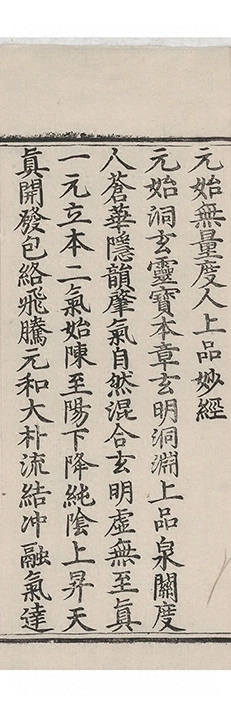 元始無量度人上品妙經
元始洞玄靈寶本章玄明洞淵上品泉關度
人蒼華隱韻肇氣自然混合玄明虛無至眞
一元立本二氣始陳至陽下降純陰上昇天
眞開發包絡飛騰元和大朴流結冲融氣達